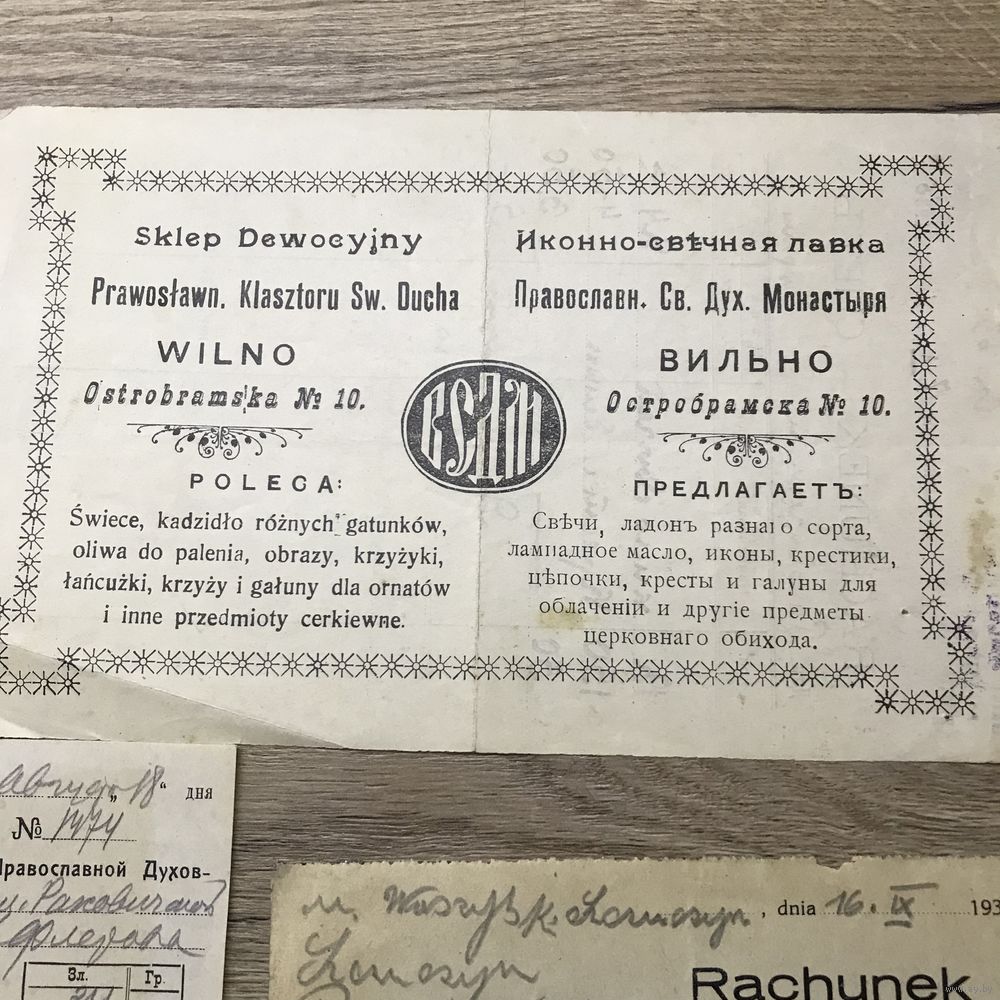 Sklep Dewocyjny
Prawosławn. Klasztoru Sw. Ducha
WILNO
Ostrobramska № 10.
POLECA:
Świece, kadzidło różnych gatunków,
oliwa do palenia, obrazy, krzyżyki,
łańcużki, krzyży i gałuny dla ornatów
i inne przedmioty cerkiewne.
Иконно-свѣчная лавка
Православн. Св. Дух. Монастыря
ВИЛЬНО
Остробрамска № 10.
ПРЕДЛАГАЕТЪ:
Свѣчи, ладонъ разнаго сорта,
лампадное масло, иконы, крестики,
цѣпочки, кресты и галуны для
облаченіи и другіе предметы
церковнаго обихода.
ВСДМ
„18“ дня
№ 1474
Православной Духов-
Зл. Гр.
dnia 16. IX 193
Rachunek
www.ay.by